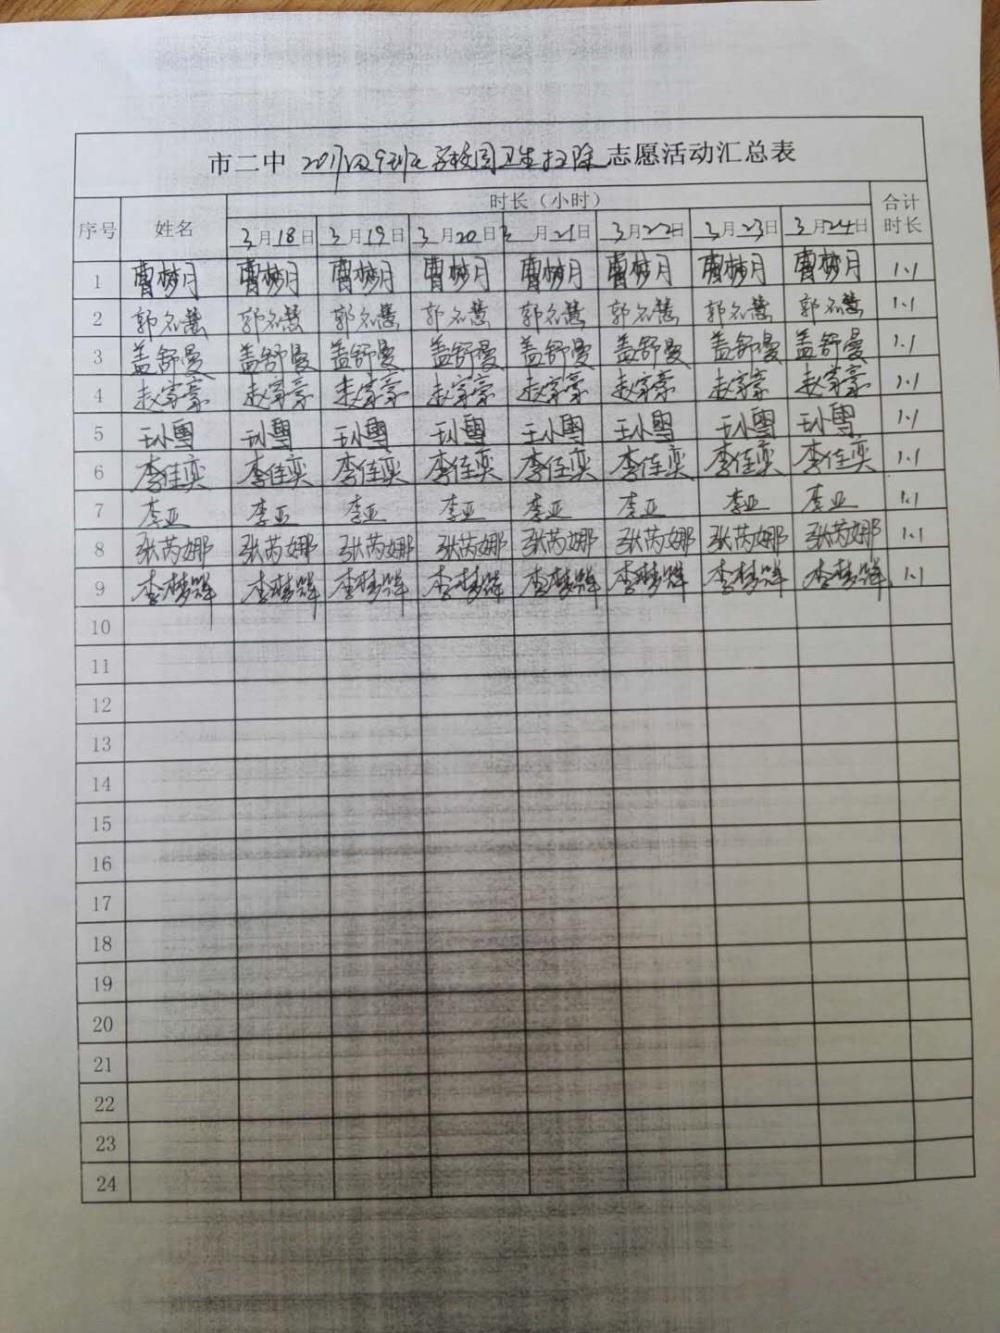 市二中 2017级9班 校园卫生扫除 志愿活动汇总表
序号 姓名 时长（小时） 合计时长
3月18日 3月19日 3月20日 3月21日 3月22日 3月23日 3月24日
1 曹梦月 曹梦月 曹梦月 曹梦月 曹梦月 曹梦月 曹梦月 曹梦月 1.1
2 郭名慧 郭名慧 郭名慧 郭名慧 郭名慧 郭名慧 郭名慧 郭名慧 1.1
3 盖舒曼 盖舒曼 盖舒曼 盖舒曼 盖舒曼 盖舒曼 盖舒曼 盖舒曼 1.1
4 赵家豪 赵家豪 赵家豪 赵家豪 赵家豪 赵家豪 赵家豪 赵家豪 1.1
5 1.1
6 李佳奕 李佳奕 李佳奕 李佳奕 李佳奕 李佳奕 李佳奕 李佳奕 1.1
7 李亚 李亚 李亚 李亚 李亚 李亚 李亚 李亚 1.1
8 张芮娜 张芮娜 张芮娜 张芮娜 张芮娜 张芮娜 张芮娜 张芮娜 1.1
9 李梦 李梦 李梦 李梦 李梦 李梦 李梦 李梦 1.1
10
11
12
13
14
15
16
17
18
19
20
21
22
23
24